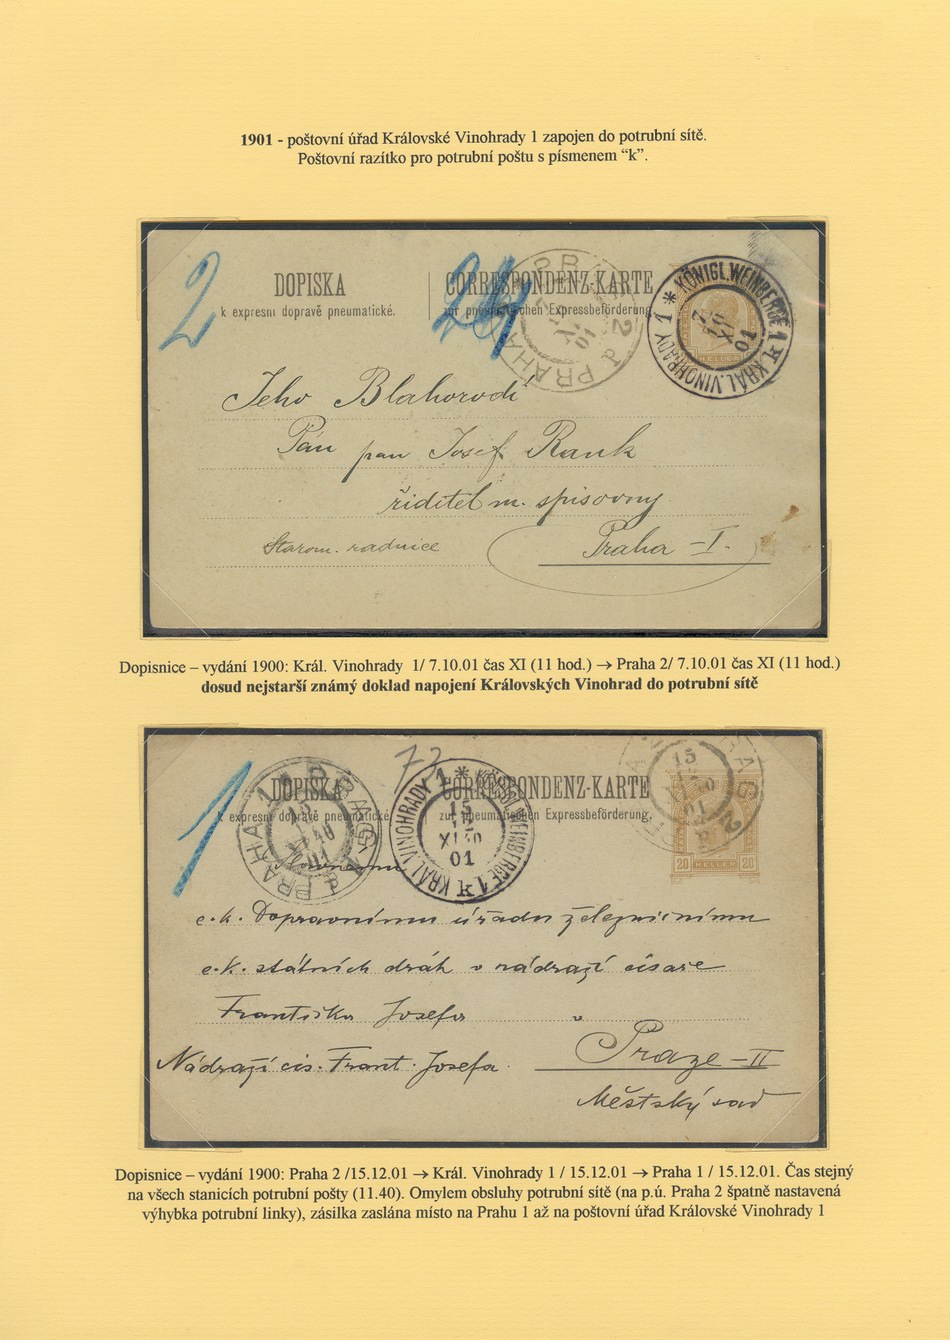 1901 - poštovní úřad Královské Vinohrady 1 zapojen do potrubní sítě.
Poštovní razítko pro potrubní poštu s písmenem “k”.
2 24
DOPISKA
k expresní dopravě pneumatické.
CORRESPONDENZ-KARTE
zur pneumatischen Expressbeförderung.
PRAHA PRAG 2
01
KÖNIGL. WEINBERGE 1 * KRÁL. VINOHRADY 1 *
7
10
XI
01
HELLER
Jeho Blahorodí
Pán pan Josef Rank
řiditel m. spisovny
Starom. radnice
Praha – I.
Dopisnice – vydání 1900: Král. Vinohrady 1/ 7.10.01 čas XI (11 hod.) → Praha 2/ 7.10.01 čas XI (11 hod.)
dosud nejstarší známý doklad napojení Královských Vinohrad do potrubní sítě
1 73
DOPISKA
k expresní dopravě pneumatické
CORRESPONDENZ-KARTE
zur pneumatischen Expressbeförderung.
PRAHA 1 PRAG 1
15
XI 40
01
KRÁL. VINOHRADY 1 * KÖNIGL. WEINBERGE 1
15
12
XI 40
01
PRAG 2
15
01
20 HELLER 20
c.k. Dopravnímu úřadu železničnímu
c.k. státních drah v nádraží císaře
Františka Josefa v
Praze – II
Nádraží cís. Frant. Josefa.
Městský sad
Dopisnice – vydání 1900: Praha 2 /15.12.01 → Král. Vinohrady 1 / 15.12.01 → Praha 1 / 15.12.01. Čas stejný
na všech stanicích potrubní pošty (11.40). Omylem obsluhy potrubní sítě (na p.ú. Praha 2 špatně nastavená
výhybka potrubní linky), zásilka zaslána místo na Prahu 1 až na poštovní úřad Královské Vinohrady 1